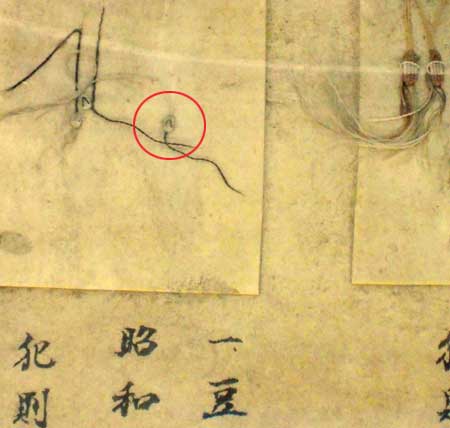 一豆
昭和
犯則